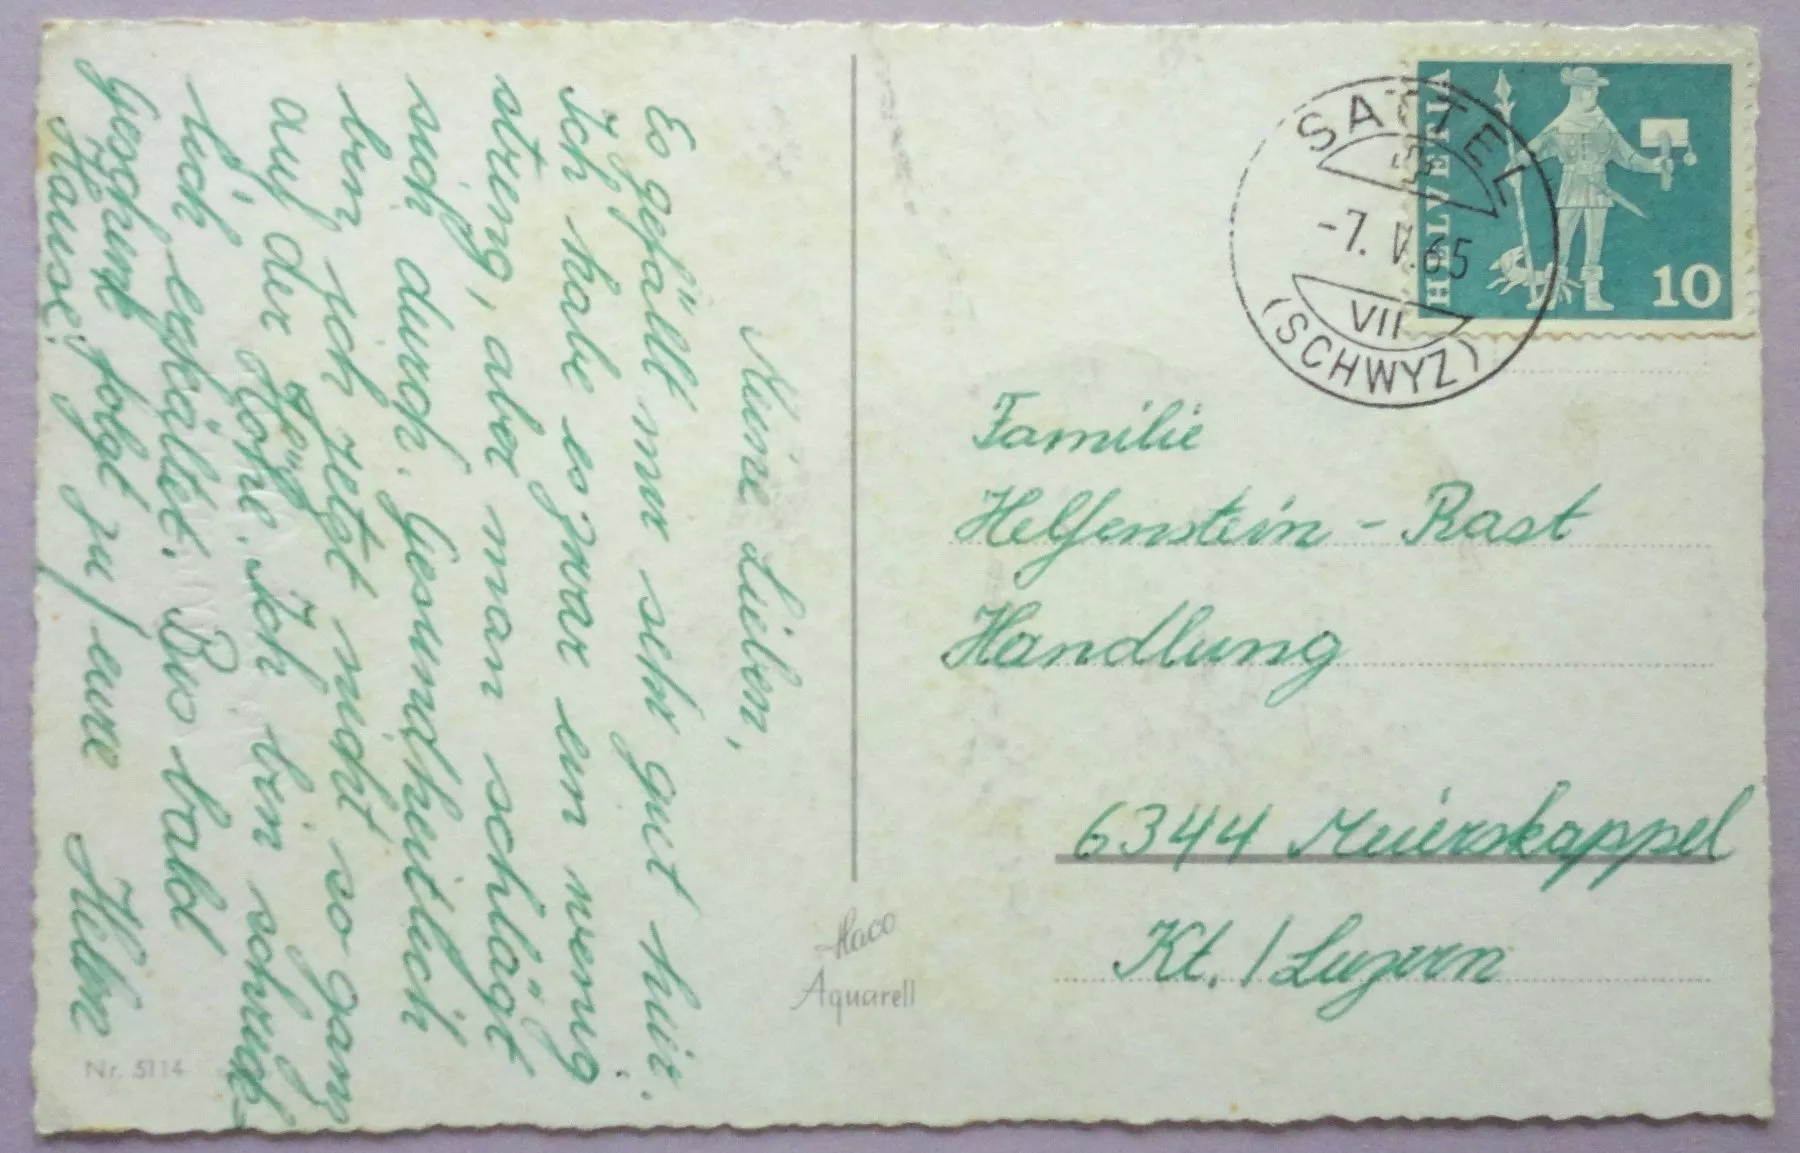 Meine Lieben,
Es gefällt mir sehr gut hier.
Ich habe es zwar ein wenig
streng, aber man schlägt
sich durch. Gesundheitlich
bin ich jetzt nicht so ganz
auf der Höhe. Ich bin schreck-
lich erkältet. Bis bald
folgt zu / eure
Hause! Helen
Nr. 5114
Haco
Aquarell
HELVETIA
10
SATTEL
-7. V. 65
VII
(SCHWYZ)
Familie
Helfenstein - Rast
Handlung
6344 Meierskappel
Kt. / Luzern